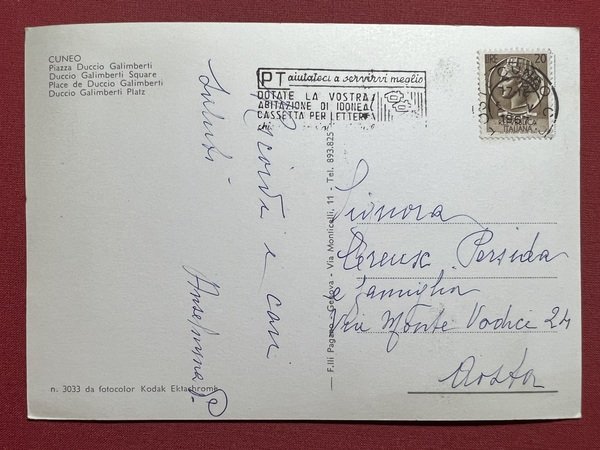 CUNEO
Piazza Duccio Galimberti
Duccio Galimberti Square
Place de Duccio Galimberti
Duccio Galimberti Platz
PT aiutateci a servirvi meglio
DOTATE LA VOSTRA
ABITAZIONE DI IDONEA
CASSETTA PER LETTERE
LIRE 20
ITALIANA
Ricordi e cari
saluti
F.lli Pagano - Genova - Via Monticelli, 11 - Tel. 893.825
Signora
Persida
e famiglia
Via Monte Vodice 24
Aosta
n. 3033 da fotocolor Kodak Ektachrome